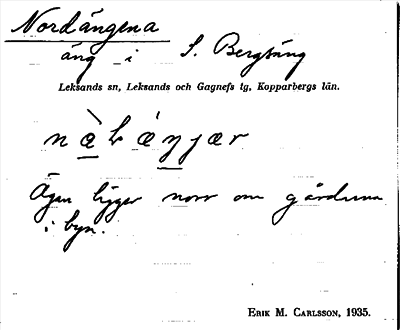 Nordängena
äng i S. Bergsäng
Leksands sn, Leksands och Gagnefs tg, Kopparbergs län.
Ägan ligger norr om gårdarna
i byn.
ERIK M. CARLSSON, 1935.